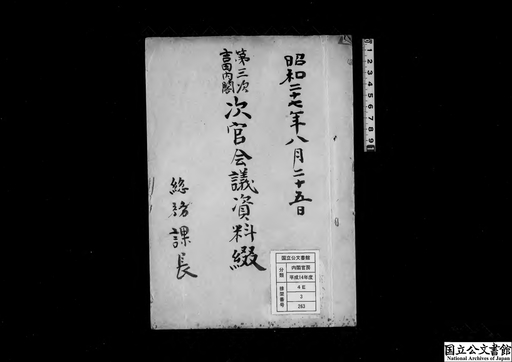 昭和二十七年八月二十五日
第三次
吉田内閣
次官会議資料綴
総務課長
国立公文書館
分類
内閣官房
平成14年度
4E
排架番号
3
263
1 2 3 4 5 6 7 8 9
国立公文書館
National Archives of Japan